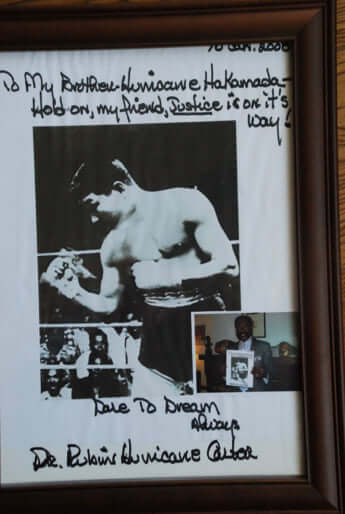 Jan. 2008
To My Brother-Hurricane Hakamada-
Hold on, my friend, Justice is on it's
Way!
Dare To Dream
Always
Dr. Rubin Hurricane Carter